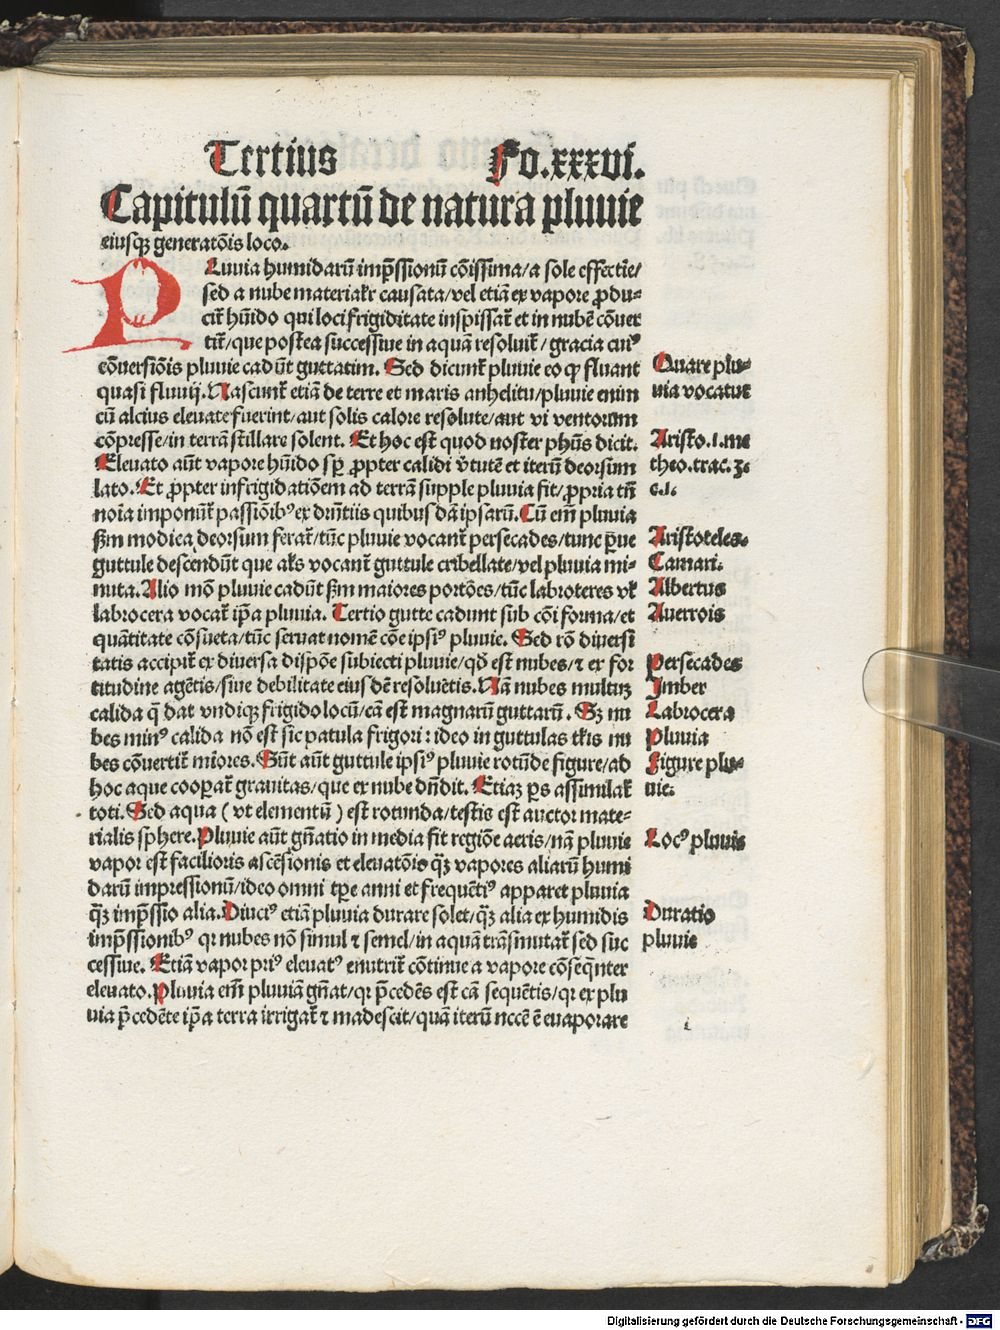 Tertius Fo.xxxvi.
Capitulū quartū de natura pluuie
eiusqꝫ generatōis loco.
PLuuia humidarū imp̄ssionū cōissima/a sole effectiē/
sed a nube materialr̄ causata/vel etiā ex vapore ꝓdu-
cit̄ hūido qui loci frigiditate inspissat̄ et in nubē cōuer
tit̄/que postea successiue in aquā resoluit̄/gracia cuiꝰ
cōuersiōis pluuie cadūt guttatim. Sed dicunt̄ pluuie eo ꝙ fluant
quasi fluuij. Nascunt̄ etiā de terre et maris anhelitu/pluuie enim
cū alcius eleuate fuerint/aut solis calore resolute/aut vi ventorum
cōpresse/in terrā stillare solent. Et hoc est quod noster phūs dicit.
Eleuato aūt vapore hūido sꝑ ꝓpter calidi v̄tutē et iterū deorsum
lato. Et ꝓpter infrigidatiōem ad terrā supple pluuia fit/ꝓpria tñ
noīa imponūt̄ passiōibꝰ ex dr̄ntiis quibus dā ipsarū. Cū em̄ pluuia
ẜm modica deorsum ferat̄/tūc pluuie vocant̄ persecades/tunc p̄ue
guttule descendūt que alr̄s vocant̄ guttule cribellate/vel pluuia mi-
nuta. Alio mō pluuie cadūt ẜm maiores portōes/tūc labroteres vl̄
labrocera vocat̄ ip̄a pluuia. Tertio gutte cadunt sub cōi forma/et
quātitate cōsueta/tūc seruat nomē cōe ipsiꝰ pluuie. Sed rō diuersi
tatis accipit̄ ex diuersa dispōe subiecti pluuie/qd̄ est nubes/⁊ ex for
titudine agētis/siue debilitate eius dē resoluētis. Nā nubes multuꝫ
calida q̄ dat vndiqꝫ frigido locū/cā est magnarū guttarū. Sꝫ nu
bes minꝰ calida nō est sic patula frigori: ideo in guttulas tl̄is nu
bes cōuertit̄ mīores. Sūt aūt guttule ipsiꝰ pluuie rotūde figure/ad
hoc aque cooꝑat̄ grauitas/que ex nube dn̄dit. Etiaꝫ ꝑs assimilat̄
toti. Sed aqua (vt elementū) est rotunda/testis est auctor mate-
rialis sphere. Pluuie aūt gn̄atio in media fit regiōe aeris/nā pluuie
vapor est facilioris ascēsionis et eleuatōis qꝫ̄ vapores aliarū humi
darū impressionū/ideo omni tꝑe anni et frequētiꝰ apparet pluuia
qꝫ̄ imp̄ssio alia. Diuciꝰ etiā pluuia durare solet/qꝫ̄ alia ex humidis
imp̄ssionibꝰ qꝛ nubes nō simul ⁊ semel/in aquā trāsmutat̄ sed suc
cessiue. Etiā vapor priꝰ eleuatꝰ enutrit̄ cōtinue a vapore cōseqn̄ter
eleuato. Pluuia em̄ pluuiā gn̄at/qꝛ p̄cedēs est cā sequētis/qꝛ ex plu
uia p̄cedēte ip̄a terra irrigat̄ ⁊ madescit/quā iterū nccē ē euaporare
Quare plu-
uia vocatur
Aristo.1.me
theo.trac.3.
c.1.
Aristoteles.
Camari.
Albertus
Auerrois
Persecades
Imber
Labrocera
Pluuia
Figure plu-
uie.
Locꝰ pluuis
Duratio
pluuie
Digitalisierung gefördert durch die Deutsche Forschungsgemeinschaft - DFG